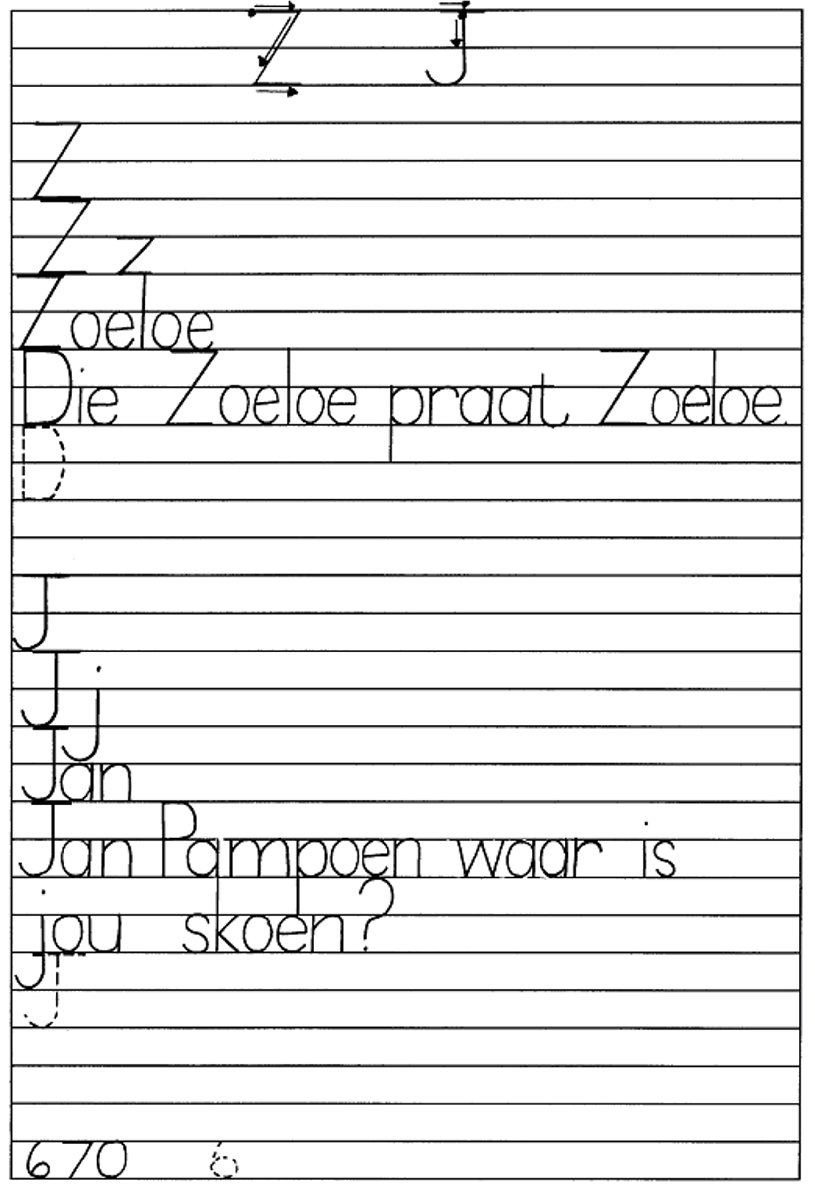 Z J
Z
Z z
Zoeloe
Die Zoeloe praat Zoeloe.
D
J
J j
Jan
Jan Pampoen waar is
jou skoen?
J
670 6